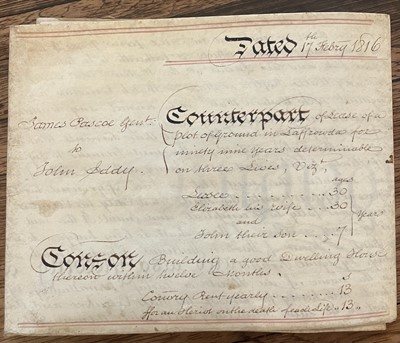 Dated 17th Febry 1816
James Pascoe Gent:
to
John Eddy.
Counterpart of Lease of a
plot of Ground in Laffrowda for
ninety nine years determinable
on three Lives, Vizt,
ages
Lessee . . . . . . . . . . 30
Elizabeth his wife . . . 30
and
John their son . . . . 7
Years
Conson Building a good Dwelling House
thereon within twelve Months.
Convy Rent yearly . . . . . . . . 13
ffor an Heriot on the death of each Life ,, 13 ,,